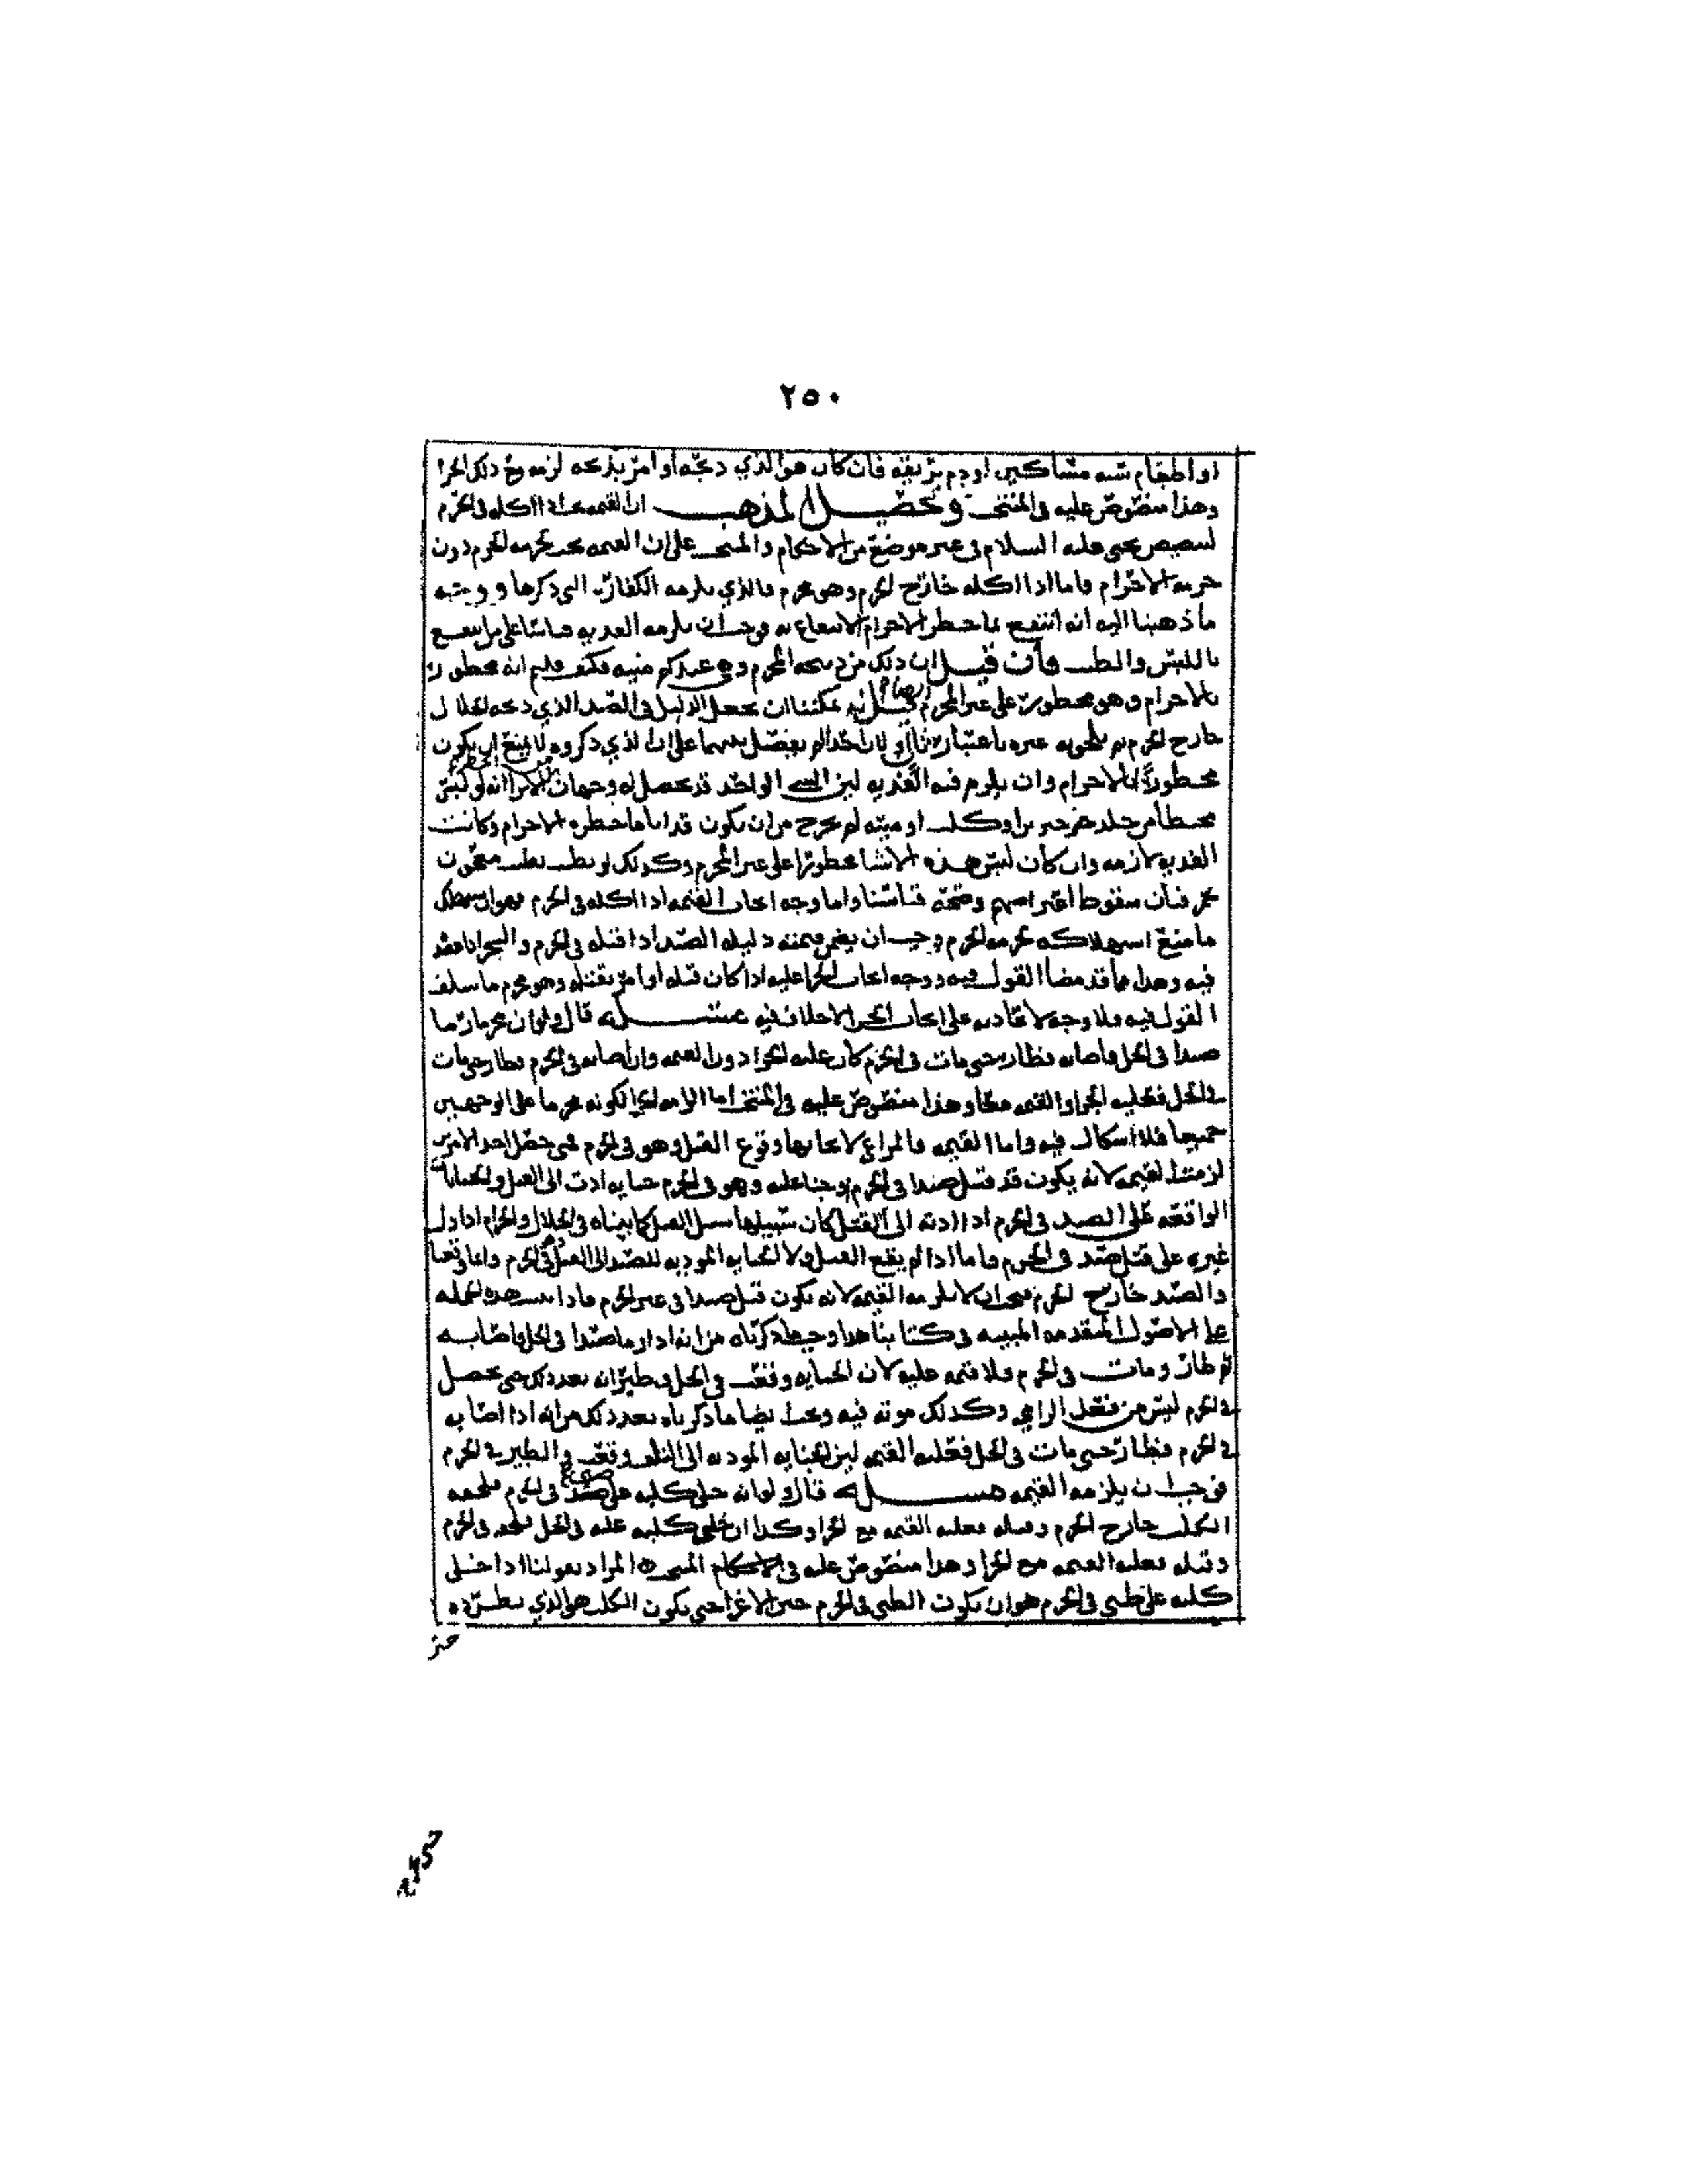 ٢٥٠
او اطعام سته مساكين او دم يريقه فان كان هو الذي ذبحه او امر بذبحه لزمه مع ذلك الجزا
وهذا منصوص عليه في المنتخب وتحصيل المذهب ان القيمه اذا اكله في الحرم
لتنصيص يحيى عليه السلام في غير موضع من الاحكام والمنتخب على ان القيمه تجب بحرمه الحرم دون
حرمه الاحرام فاما اذا اكله خارج الحرم وهو محرم فالذي يلزمه الكفاره التي ذكرها ووجه
ما ذهبنا اليه انه انتفع بما حظر الاحرام الانتفاع به فوجب ان يلزمه الفديه قياسا على من انتفع
باللبس والطيب فان قيل ان ذلك من ذبيحه المحرم وهو عندكم ميته فكيف قلتم انه محظور
بالاحرام وهو محظور على غير المحرم قيل له يمكننا ان نجعل الدليل في الصيد الذي ذبحه الحلال
خارج الحرم ثم نلحق به غيره باعتبار ولان احدا لم يفصل بينهما على ان الذي ذكروه لا يمنع ان يكون
محظورا بالاحرام وان يلزم فيه الفديه لان الشي الواحد قد يحصل له وجهان الا ترا انه لو لبس
مخيطا من جلد خنزير او كلب او ميته لم يخرج من ان يكون قد اتا ما حظره الاحرام وكانت
الفديه لازمه وان كان لبس هذه الاشيا محظورا على غير المحرم وكذلك لو تطيب بطيب معجون
بخمر فبان سقوط اعتراضهم وصحه قياسنا واما وجه ايجاب القيمه اذا اكله في الحرم فهو ان
ما منع استهلاكه بحرمه الحرم وجب ان يضمن قيمته دليله الصيد اذا قتله في الحرم والشجر اذا
فيه وهذا مما قد مضا القول فيه ووجه ايجاب الجزا عليه اذا كان قتله او امر بقتله وهو محرم ما سلف
القول فيه فلا وجه لاعادته على ايجاب الجزا لا خلاف فيه مسئله قال ولو ان محرما رما
صيدا في الحل فاصابه فطار حتى مات في الحرم كان عليه الجزا دون القيمه وان اصابه في الحرم فطار حتى مات
في الحل فعليه الجزا والقيمه معا وهذا منصوص عليه في المنتخب اما الزامه الجزا لكونه محرما على الوجهين
جميعا فلا اشكال فيه واما القيمه فالمراعى لايجابها وقوع القتل وهو في الحرم فمتى حصل احد الامرين
لزمت القيمه لانه يكون قد قتل صيدا في الحرم او جنا عليه وهو في الحرم جنايه ادت الى القتل والجنايات
الواقعه على الصيد في الحرم اذا ادته الى القتل كان سبيلها سبيل القتل كما بيناه في الحلال والحرام اذا دل
غيره على قتل صيد في الحرم فاما اذا لم يقع القتل ولا الجنايه الموديه للصيد الى القتل في الحرم وانما وقعا
والصيد خارج الحرم فيجب ان لا يلزمه القيمه لانه يكون قتل صيدا في غير الحرم فاذا هذه الجمله
على الاصول المتقدمه المبينه في كتابنا هذا وجب ما ذكرناه من انه اذا رما صيدا في الحل فاصابه
ثم طار ومات في الحرم فلا قيمه عليه لان الجنايه وقعت في الحل وطيرانه بعد ذلك حتى يحصل
في الحرم ليس من فعل الرامي وكذلك موته فيه وجب ايضا ما ذكرناه بعد ذلك من انه اذا اصابه
في الحرم فطار حتى مات في الحل فعليه القيمه لان الجنايه الموديه الى التلف وقعت والطير في الحرم
فوجب ان يلزمه القيمه مسئله قال ولو انه خلى كلبه على صيد في الحرم فلحقه
الكلب خارج الحرم وقتله فعليه القيمه مع الجزا وكذا ان خلى كلبه عليه في الحل فلحقه في الحرم
وقتله فعليه القيمه مع الجزا وهذا منصوص عليه في الاحكام المراد بقولنا اذا خلى
كلبه على ظبي في الحرم هو ان يكون الظبي في الحرم حين الاغرا حتى يكون الكلب هو الذي يطرده